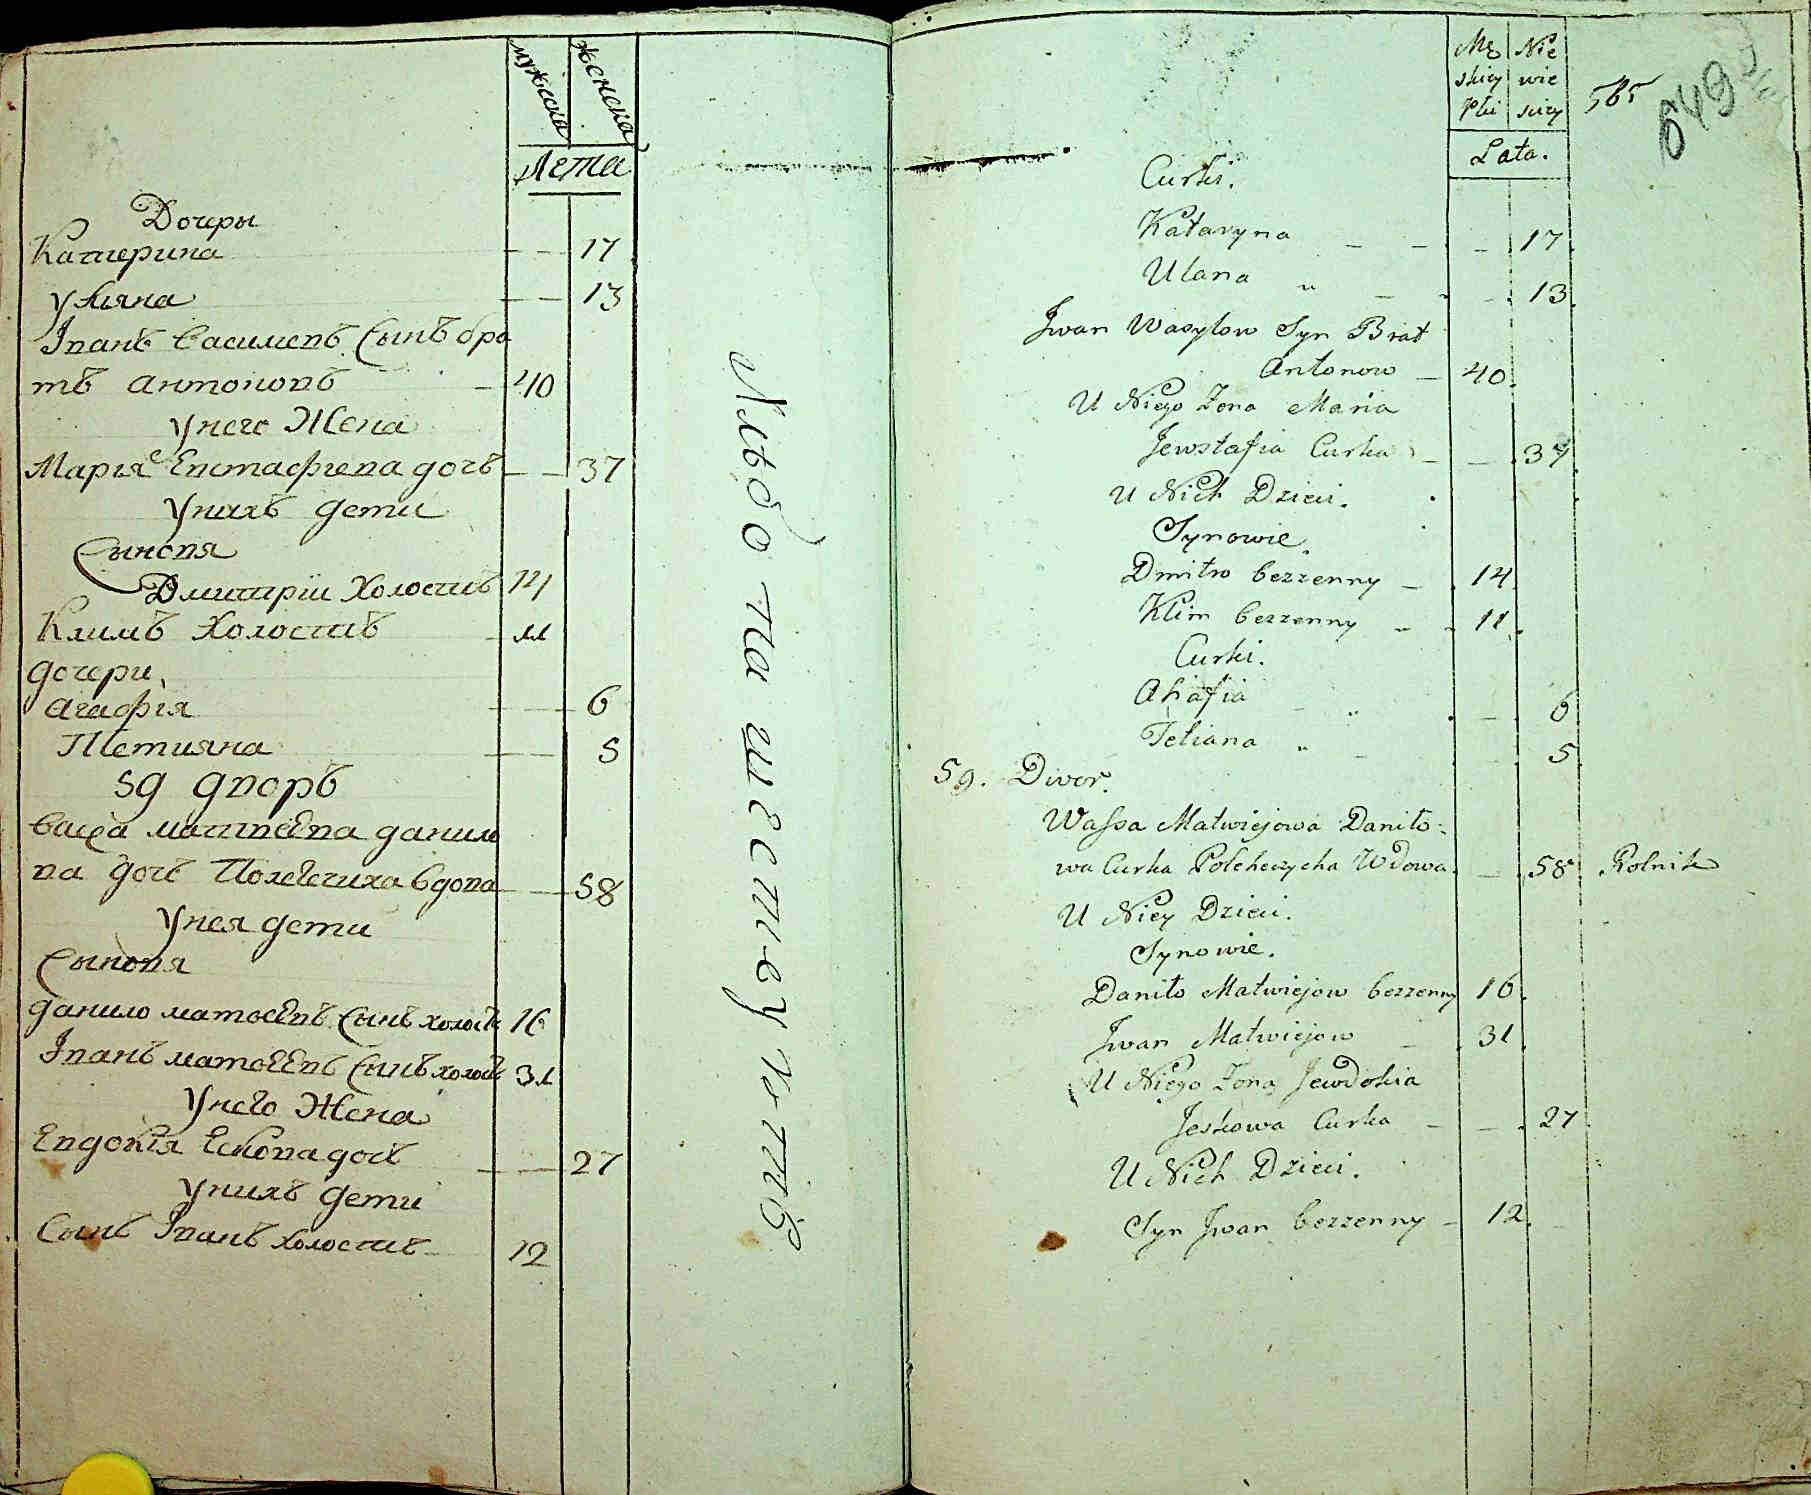 мужеска женска
Лета
Дочеры
Катерина — — 17
уляна — — 13
Іванъ василевъ Сынъ бра
тъ антоновъ — 40
Унего Жена
Марія Евстафіева дочь — — 37
Унихъ дети
Сыновя
Дмитріи Холостъ 14
Климъ Холостъ — 11
дочери
агафія — — 6
Тетияна — — 5
59 дворъ
васса матвеева данило
ва дочь Полегечиха вдова — — 58
Унея дети
Сыновя
данило матвеевъ Сынъ холостъ 16
Іванъ матвеевъ Сынъ холостъ 31
Унего Жена
Евдокія Ескова дочь — — 27
Унихъ дети
Сынъ Іванъ холостъ — 12
Mę Nie
skiey wie
Płci sciey
Lata.
565
649
Curki.
Kataryna — — — 17.
Ulana „ — — 13.
Jwan Wasylow Syn Brat
Antonow — 40.
U Niego Zona Maria
Jewstafia Curka — — 37.
U Nich Dzieci.
Synowie.
Dmitro bezzenny — 14.
Klim bezzenny „ 11.
Curki.
Ahafia — „ — 6
Tetiana „ — 5
59. Dwor.
Wassa Matwiejowa Daniło-
wa Curka Polehczycha Wdowa. — 58 Rolnik
U Niey Dzieci.
Synowie.
Daniło Matwiejow bezzenny 16.
Jwan Matwiejow — 31.
U Niego Zona Jewdokia
Jeskowa Curka — — 27
U Nich Dzieci.
Syn Jwan bezzenny — 12.